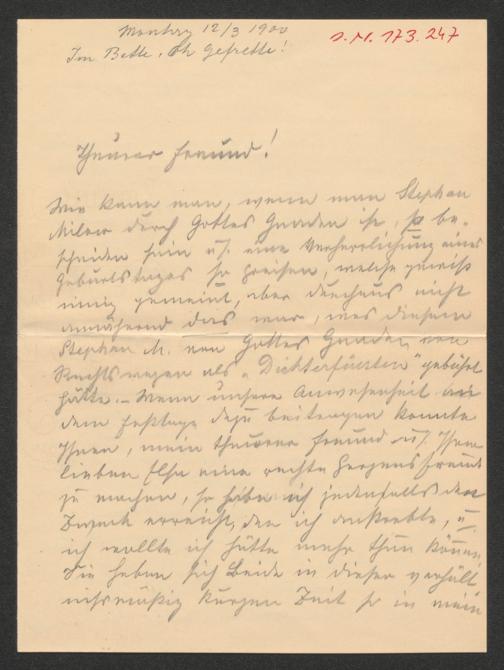 Montag 12/3 1900
J.N. 173.247
Im Bette. Oh Gefrette!
Theurer Freund!
Wie kann man, wenn man Stephan
Milow durch Gottes Gnaden ist, so be-
scheiden sein u. eine Verherrlichung eines
Geburtstages so preisen, welche gewiß
innig gemeint, aber durchaus nicht
annähernd das war, was diesem
Stephan M. von Gottes Gnaden von
Rechtswegen als "Dichterfürsten" gebührt
hätte. - Wenn unsere Anwesenheit an
dem Festtage dazu beitragen konnte
Ihnen, mein theurer Freund u. Ihrer
lieben Elsa eine rechte Herzensfreude
zu machen, so habe ich jedenfalls den
Zweck erreicht, den ich anstrebte, u
ich wollte ich hätte mehr thun können.
Sie haben sich Beide in dieser verhält
nismäßig kurzen Zeit so in mein